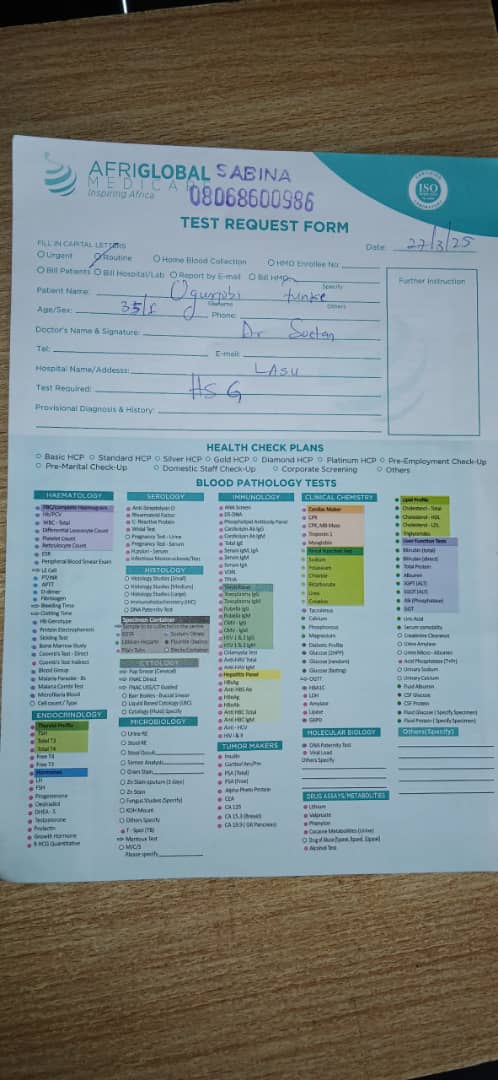 AFRIGLOBAL SABINA
MEDICA
Inspiring Africa 08068600986
CERTIFIED
ISO
TEST REQUEST FORM
FILL IN CAPITAL LETTERS
Date: 27/3/25
Urgent Routine Home Blood Collection HMO Enrollee No:
Bill Patients Bill Hospital/Lab Report by E-mail Bill HMO
Specify
Further Instruction
Patient Name: tunise
Surname Others
Age/Sex: 35/f Phone:
Doctor's Name & Signature: Dr Soetan
Tel: E-mail:
Hospital Name/Address: LASU
Test Required: HSG
Provisional Diagnosis & History:
HEALTH CHECK PLANS
Basic HCP Standard HCP Silver HCP Gold HCP Diamond HCP Platinum HCP Pre-Employment Check-Up
Pre-Marital Check-Up Domestic Staff Check-Up Corporate Screening Others
BLOOD PATHOLOGY TESTS
HAEMATOLOGY
Hb/PCV
WBC - Total
Differential Leucocyte Count
Platelet Count
Reticulocyte Count
ESR
Peripheral Blood Smear Exam
LE Cell
PT/INR
APTT
D-dimer
Fibrinogen
Bleeding Time
Clotting Time
HB Genotype
Protein Electrophoresis
Sickling Test
Bone Marrow Study
Coomb's Test - Direct
Coomb's Test Indirect
Blood Group
Malaria Parasite - BS
Malaria Combi Test
Microfilaria Blood
Cell count / Type
ENDOCRINOLOGY
Thyroid Profile
TSH
Total T3
Total T4
Free T4
Free T3
Hormones
LH
FSH
Progesterone
Oestradiol
DHEA - S
Testosterone
Prolactin
Growth Hormone
B HCG Quantitative
SEROLOGY
Anti-Streptolysin O
Rheumatoid Factor
C- Reactive Protein
Widal Test
Pregnancy Test - Urine
Pregnancy Test - Serum
H.pylori - Serum
HISTOLOGY
Histology Studies (Small)
Histology Studies (Medium)
Histology Studies (Large)
Immunohistochemistry (IHC)
DNA Paternity Test
Specimen Container
EDTA Sodium Citrate
Lithium Heparin Fluoride Oxalate
Plain Tube
CYTOLOGY
Pap Smear (Cervical)
FNAC Direct
FNAC USG/CT Guided
Barr Bodies - Buccal Smear
Liquid Based Cytology (LBC)
Cytology (Fluid) Specify
MICROBIOLOGY
Urine RE
Stool RE
Stool Occult
Semen Analysis
Gram Stain
Zn Stain sputum (3 days)
Zn Stain
Fungus Studies (Specify)
KOH Mount
Others Specify
T - Spot (TB)
Mantoux Test
M/C/S
Please specify
IMMUNOLOGY
ANA Screen
DS-DNA
Phospholipid Antibody Panel
Cardiolipin Ab IgG
Cardiolipin Ab IgM
Total IgE
Serum IgM, IgA
Serum IgG
Serum IgA
VDRL
TPHA
Toxoplasma IgG
Toxoplasma IgM
Rubella IgG
Rubella IgM
CMV - IgG
CMV - IgM
HSV 1 & 2 IgG
HSV 1 & 2 IgM
Chlamydia Test
Anti-HAV Total
Anti HAV IgM
Hepatitis Panel
HBsAg
Anti HBS Ab
HBeAg
HBeAb
Anti HBC Total
Anti HBC IgM
Anti - HCV
HIV I & II
TUMOR MAKERS
Insulin
PSA (Total)
PSA (Free)
Alpha Photo Protein
CEA
CA 125
CA 15.3 (Breast)
CA 19.9 ( GA Pancreas)
CLINICAL CHEMISTRY
Cardiac Maker
CPK
CPK/MB Mass
Troponin 1
Myoglobin
Renal Function Test
Sodium
Potassium
Chloride
Bicarbonate
Urea
Creatine
Calcium
Phosphorus
Magnesium
Diabetic Profile
Glucose (2HPP)
Glucose (random)
Glucose (fasting)
OGTT
HBA1C
LDH
Amylase
Lipase
G6PD
MOLECULAR BIOLOGY
DNA Paternity Test
Viral Load
Others Specify
DRUG ASSAYS/METABOLITES
Lithium
Valproate
Phenytoin
Cocaine Metabolites (Urine)
Alcohol Test
Lipid Profile
Cholesterol - Total
Cholesterol - HDL
Cholesterol - LDL
Triglycerides
Liver Function Tests
Bilirubin (total)
Bilirubin (direct)
Total Protein
Albumin
SGPT (ALT)
SGOT (AST)
Alk (Phosphatase)
GGT
Uric Acid
Serum osmolality
Creatinine Clearance
Urine Amylase
Urine Micro - Albumin
Acid Phosphatase (T+Pr)
Urinary Sodium
Urinary Calcium
Fluid Albumin
CSF Glucose
CSF Protein
Fluid Glucose ( Specify Specimen)
Fluid Protein ( Specify Specimen)
Others(Specify)